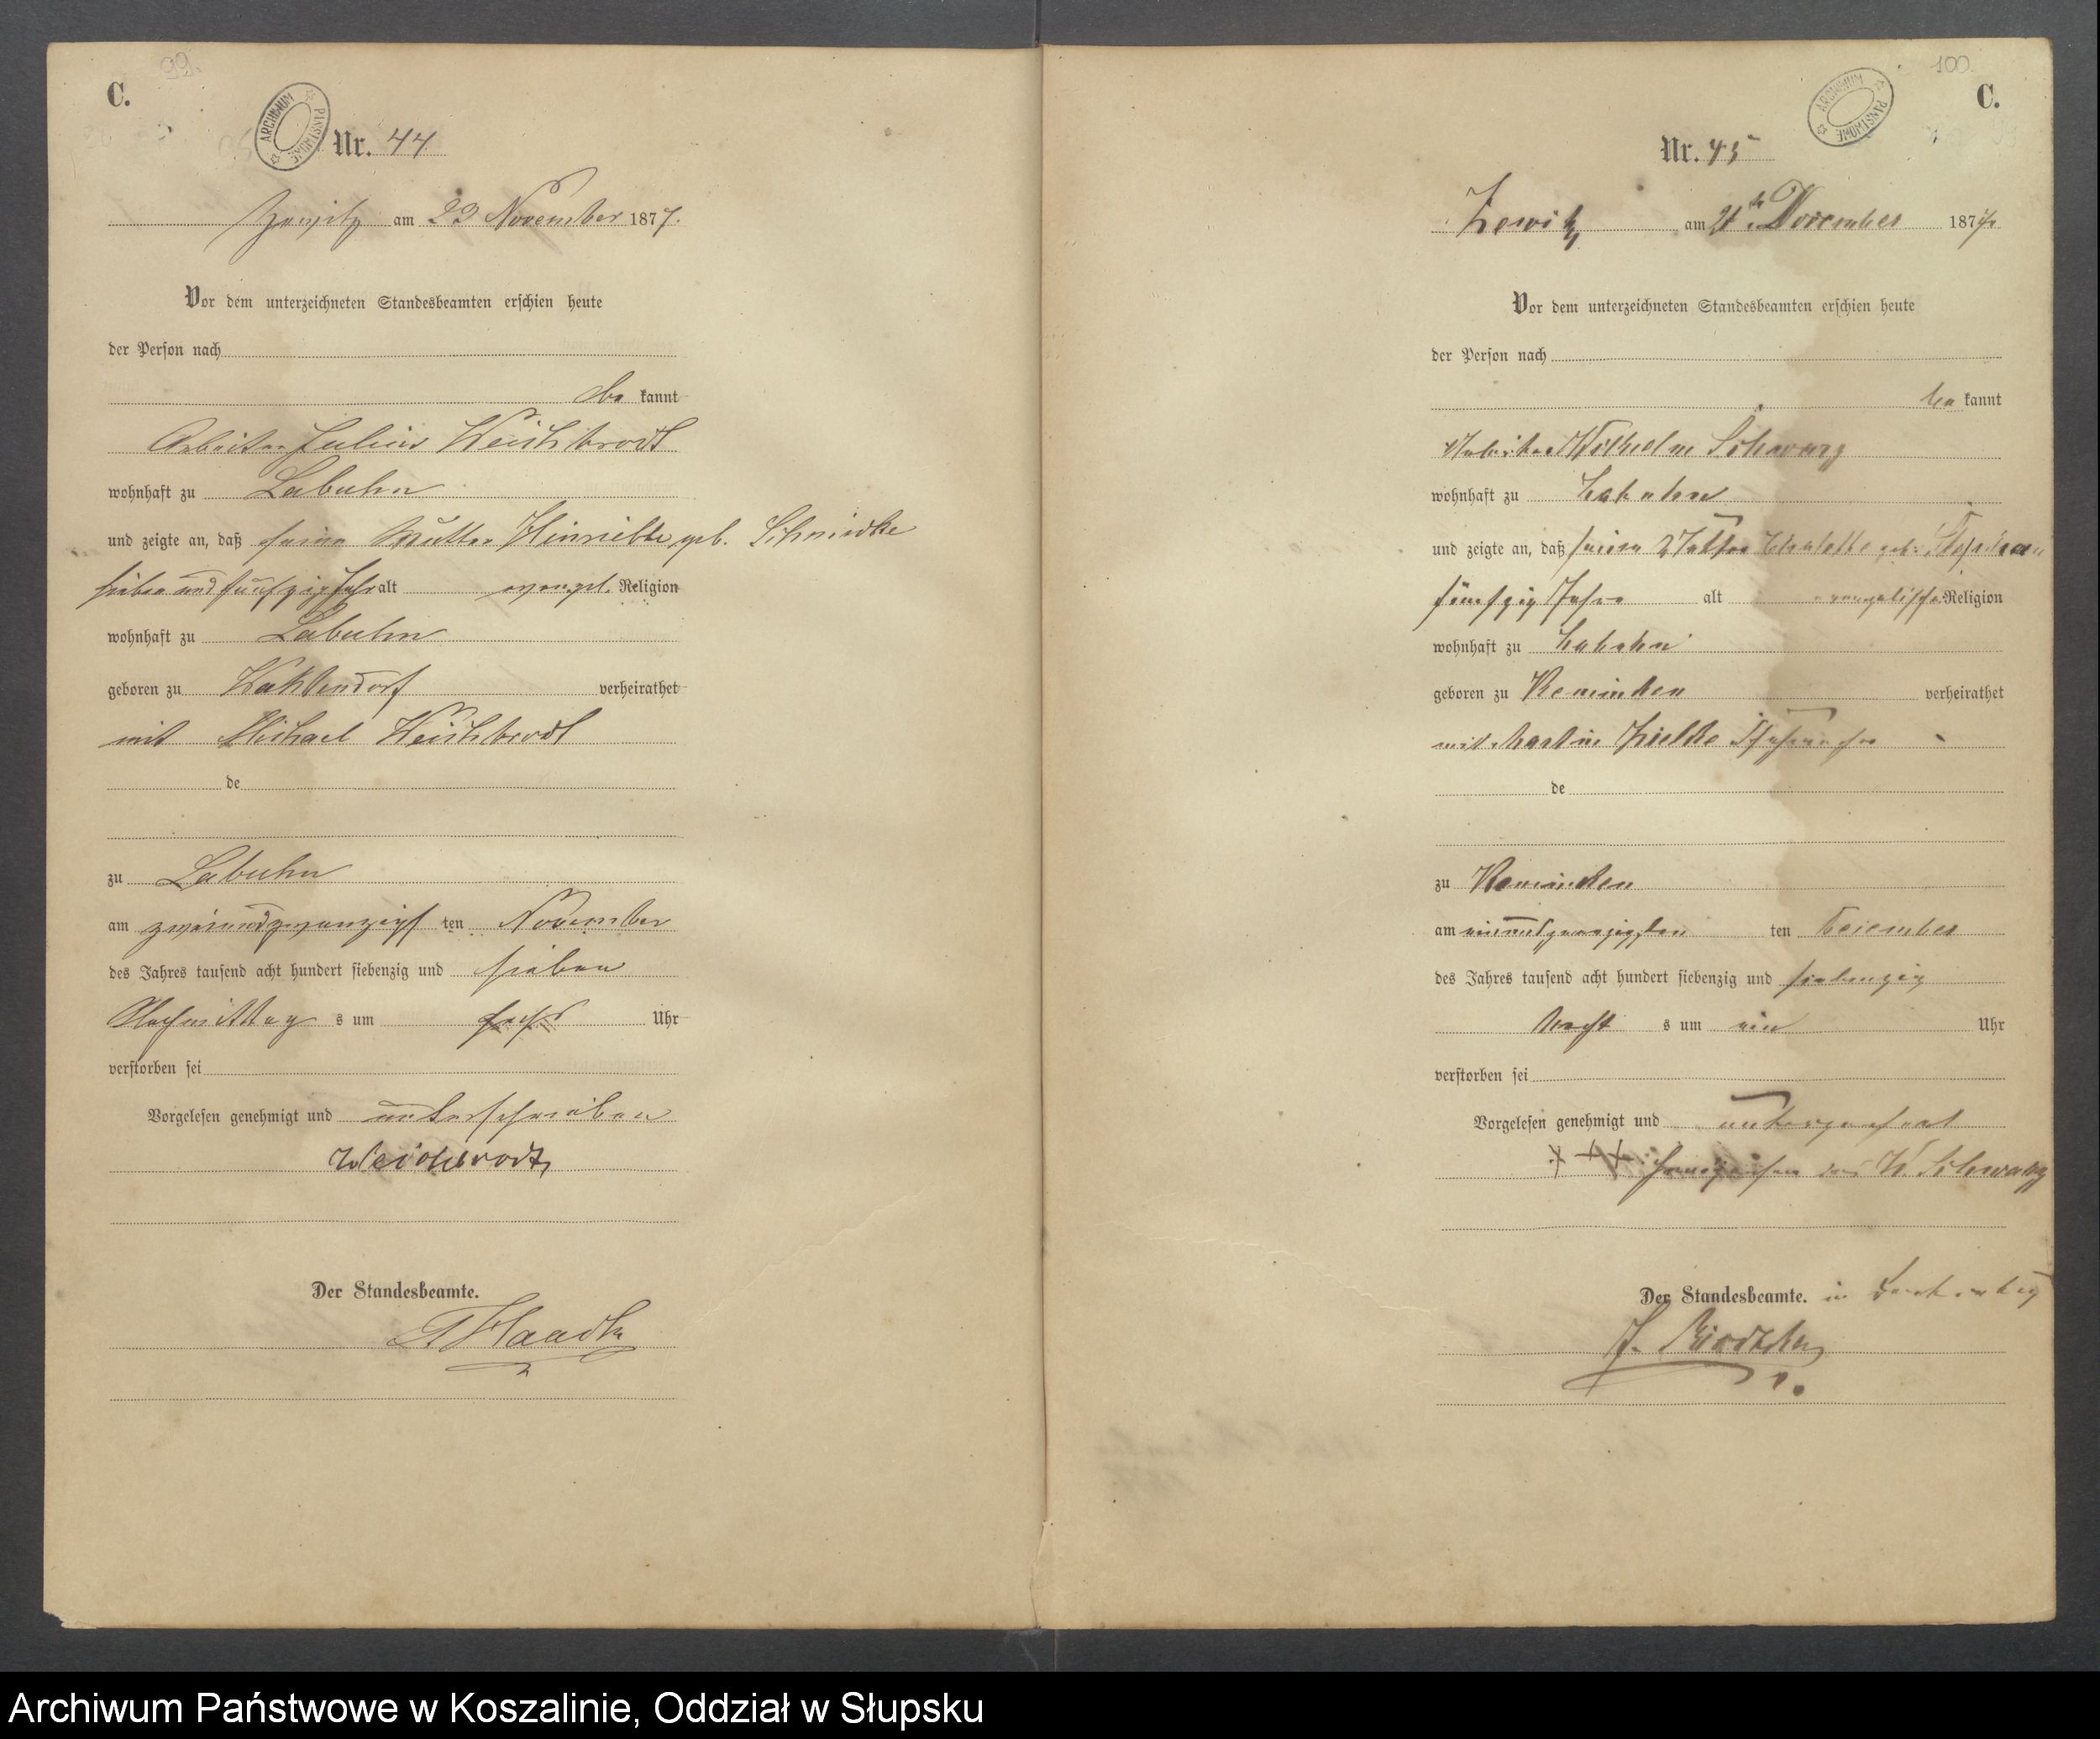 99.
C.
ARCHIWUM PAŃSTWOWE
Nr. 44
Zewitz am 23 November 1877.
Vor dem unterzeichneten Standesbeamten erschien heute
der Person nach
be kannt
Arbeiter Julius Weichbrodt
wohnhaft zu Labuhn
und zeigte an, daß seine Mutter Hinriette geb. Schmidke
sieben und fünfzig Jahr alt evangel. Religion
wohnhaft zu Labuhn
geboren zu Wahlendorf verheirathet
mit Michael Weichbrodt
de
zu Labuhn
am zweiundzwanzigs ten November
des Jahres tausend acht hundert siebenzig und sieben
Nachmittag s um sechs Uhr
verstorben sei
Vorgelesen genehmigt und unterschrieben
Weichbrodt
Der Standesbeamte.
100.
C.
ARCHIWUM PAŃSTWOWE
Nr. 45
Zewitz am 21
Vor dem unterzeichneten Standesbeamten erschien heute
der Person nach
be kannt
Arbeiter Wilhelm Schwarz
wohnhaft zu Labuhn
und zeigte an, daß seine geb.
fünfzig Jahre alt evangelische Religion
wohnhaft zu Labuhn
geboren zu verheirathet
mit Martin Zielke
de
zu
am einundzwanzigsten ten
des Jahres tausend acht hundert siebenzig und siebenzig
Nacht s um ein Uhr
verstorben sei
Vorgelesen genehmigt und
+ + + Handzeichen des W. Schwarz
Der Standesbeamte. in
Archiwum Państwowe w Koszalinie, Oddział w Słupsku